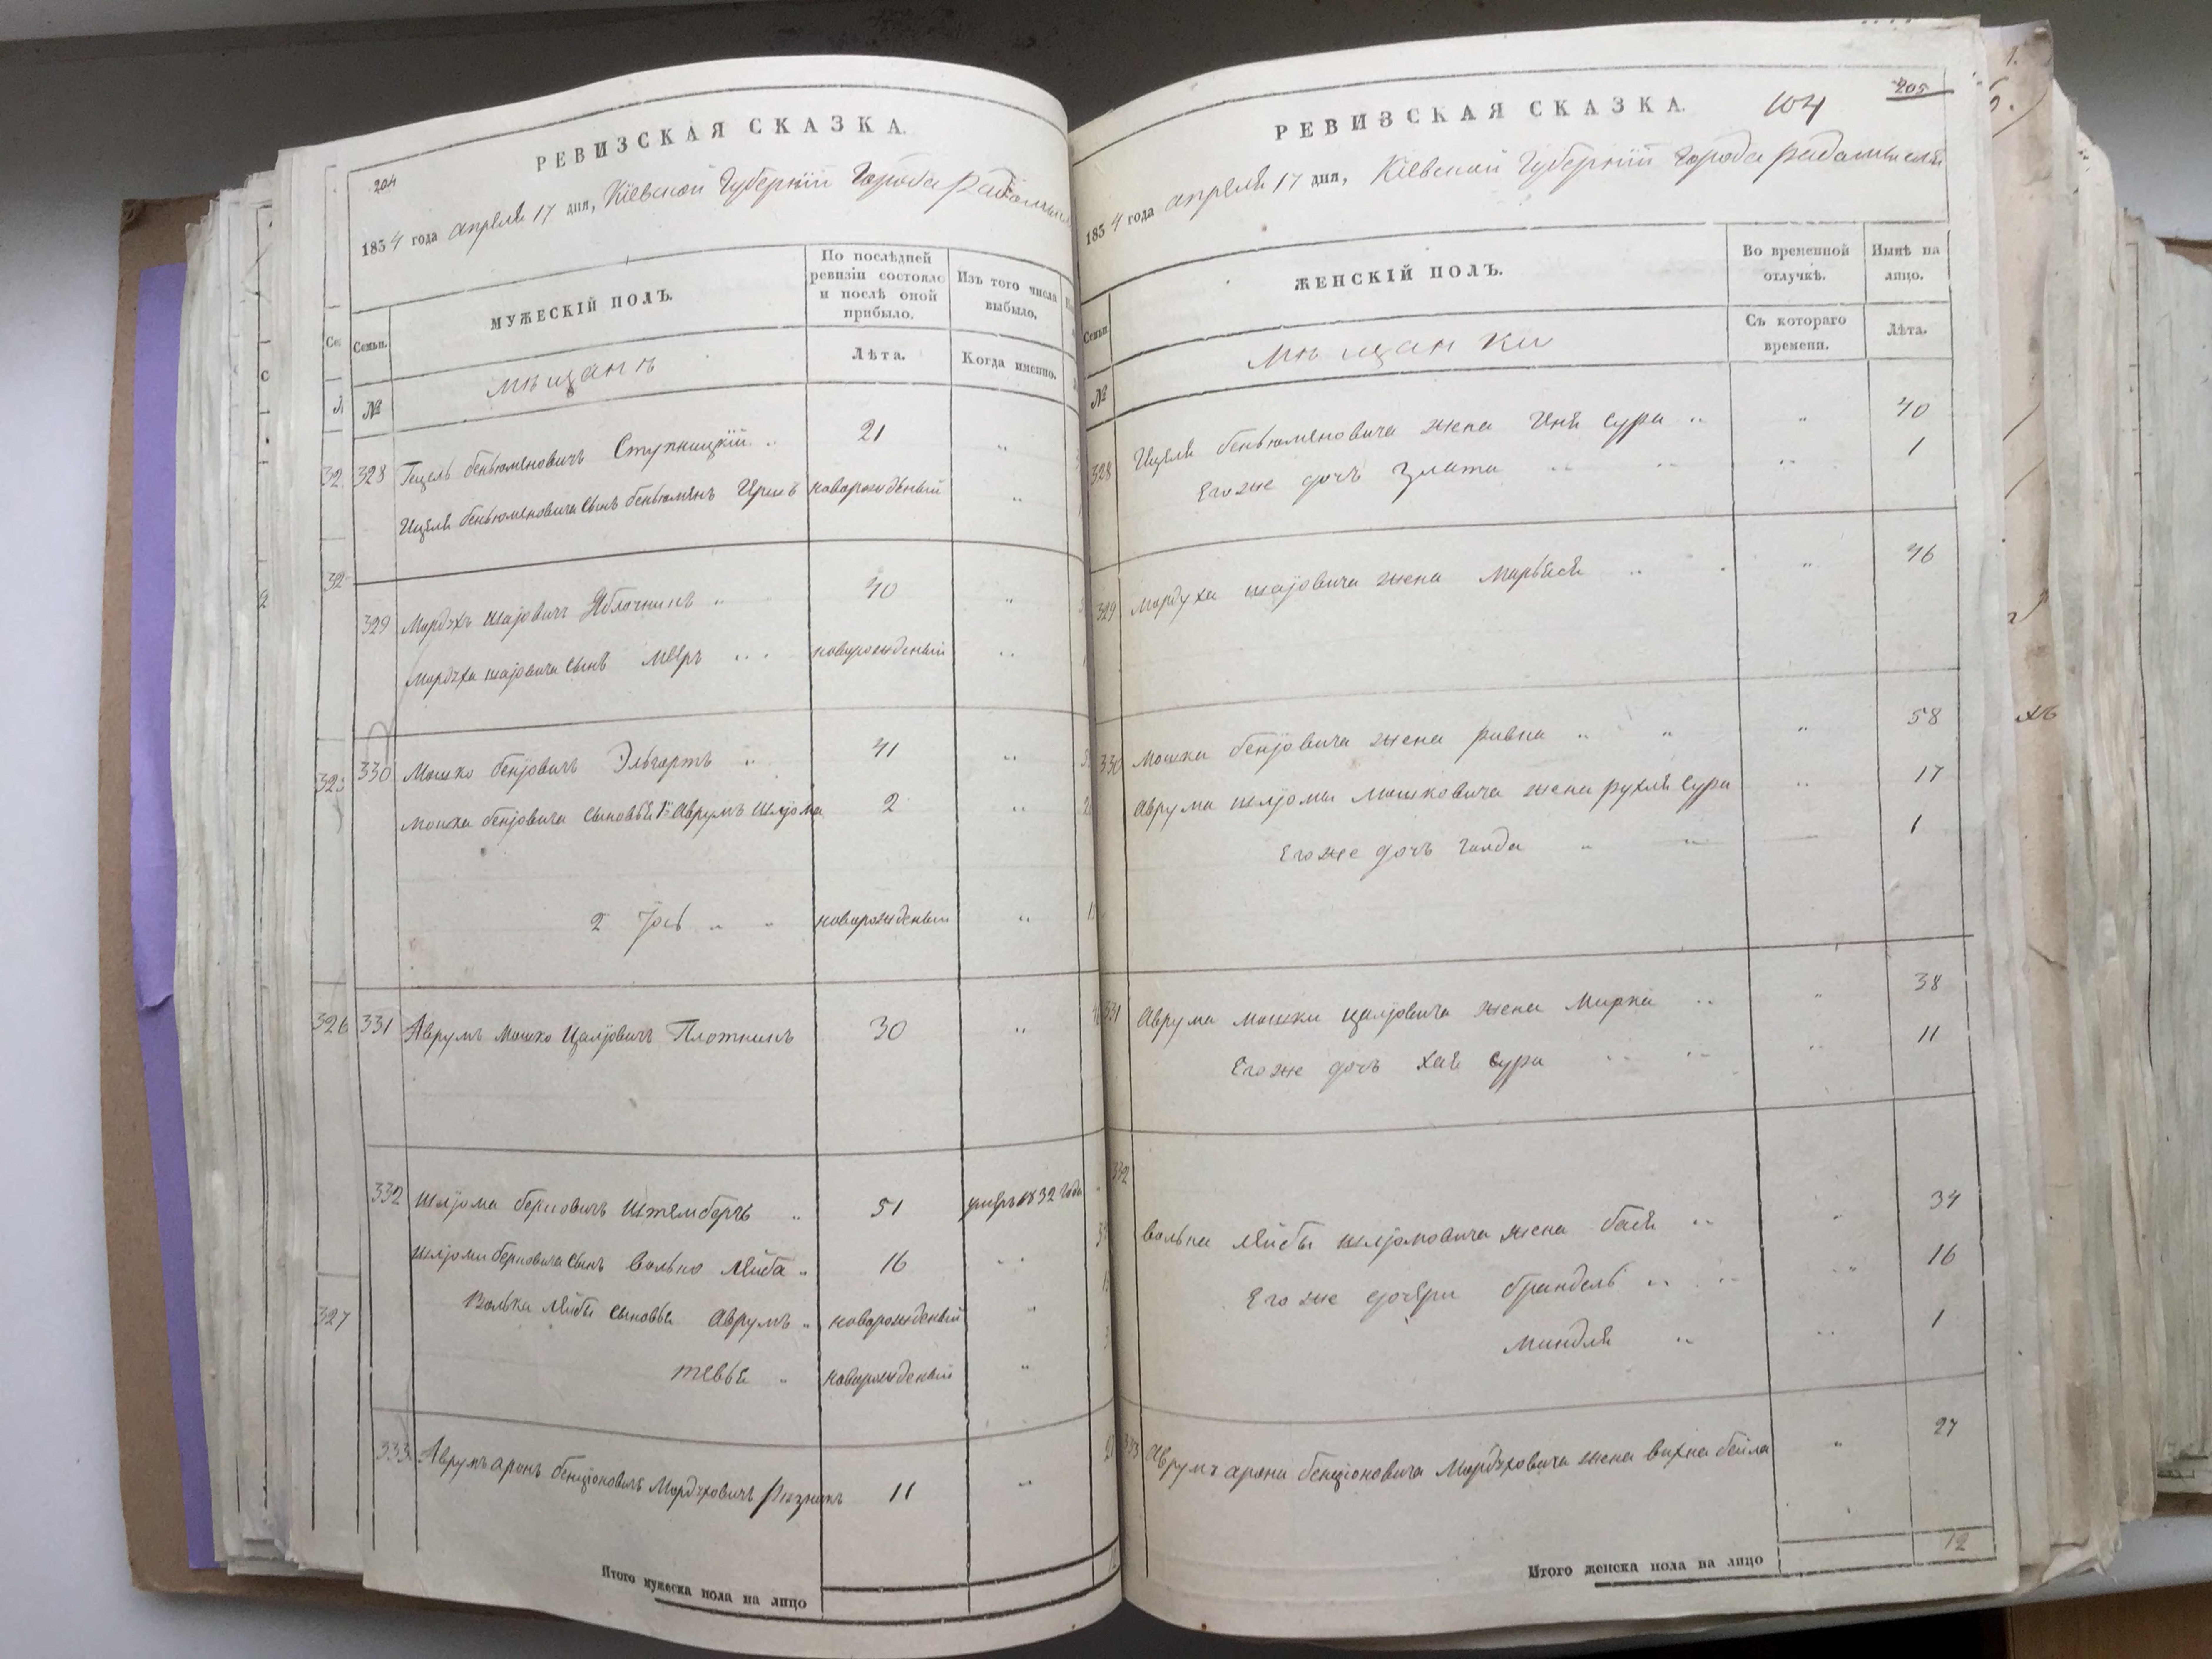 204
РЕВИЗСКАЯ СКАЗКА.
1834 года апреля 17 дня, Кіевской Губерніи Города
Семьи.
МУЖЕСКІЙ ПОЛЪ.
По послѣдней ревизіи состояло и послѣ оной прибыло.
Изъ того числа выбыло.
№
мѣщанъ
Лѣта.
Когда именно.
328 Гецель беньюменовичъ Ступницкій 21
Ицеля беньюменовича сынъ беньюменъ новорожденый
329 Мордхъ шаjовичъ Яблочникъ 40
Мордха шаjовича сынъ Мееръ новорожденый
330 Мошко бенjовичъ Эльгортъ 41
Мошка бенjовича сыновья 1й Аврумъ Шлjома 2
2 Jось новорожденый
331 Аврумъ Мошко Цалjовичъ Плотникъ 30
332 шлjома берковичъ Штемберъ 51 умеръ 1832 года
шлjоми берковича сынъ Волько Лейба 16
Волька Лейбы сыновья Аврумъ новорожденый
тевье новорожденый
333 Аврумъ аронъ бенціоновичъ Мордховичъ Рѣзникъ 11
Итого мужеска пола на лицо
РЕВИЗСКАЯ СКАЗКА.
104
205
1834 года апреля 17 дня, Кіевской Губерніи Города радомысля
Семьи.
ЖЕНСКІЙ ПОЛЪ.
Во временной отлучкѣ.
Нынѣ на лицо.
№
мѣщанки
Съ котораго времени.
Лѣта.
328 Ицеля беньюменовича жена Иня сура 40
Его же дочь Злата 1
329 Мордуха шаjовича жена Марьяся 46
330 Мошка бенjовича жена ривка 58
Аврума шлjомы Мошковича жена рухля сура 17
Его же дочь голда 1
331 Аврума мошки цалjовича жена Мирка 38
Его же дочь хая сура 11
332
волька лейбы шлjомовича жена бася 34
Его же дочери брандель 16
миндля 1
333 Аврумъ арона бенціоновича Мордховича жена вихна бейла 27
Итого женска пола на лицо 12
32
32
323
326
327